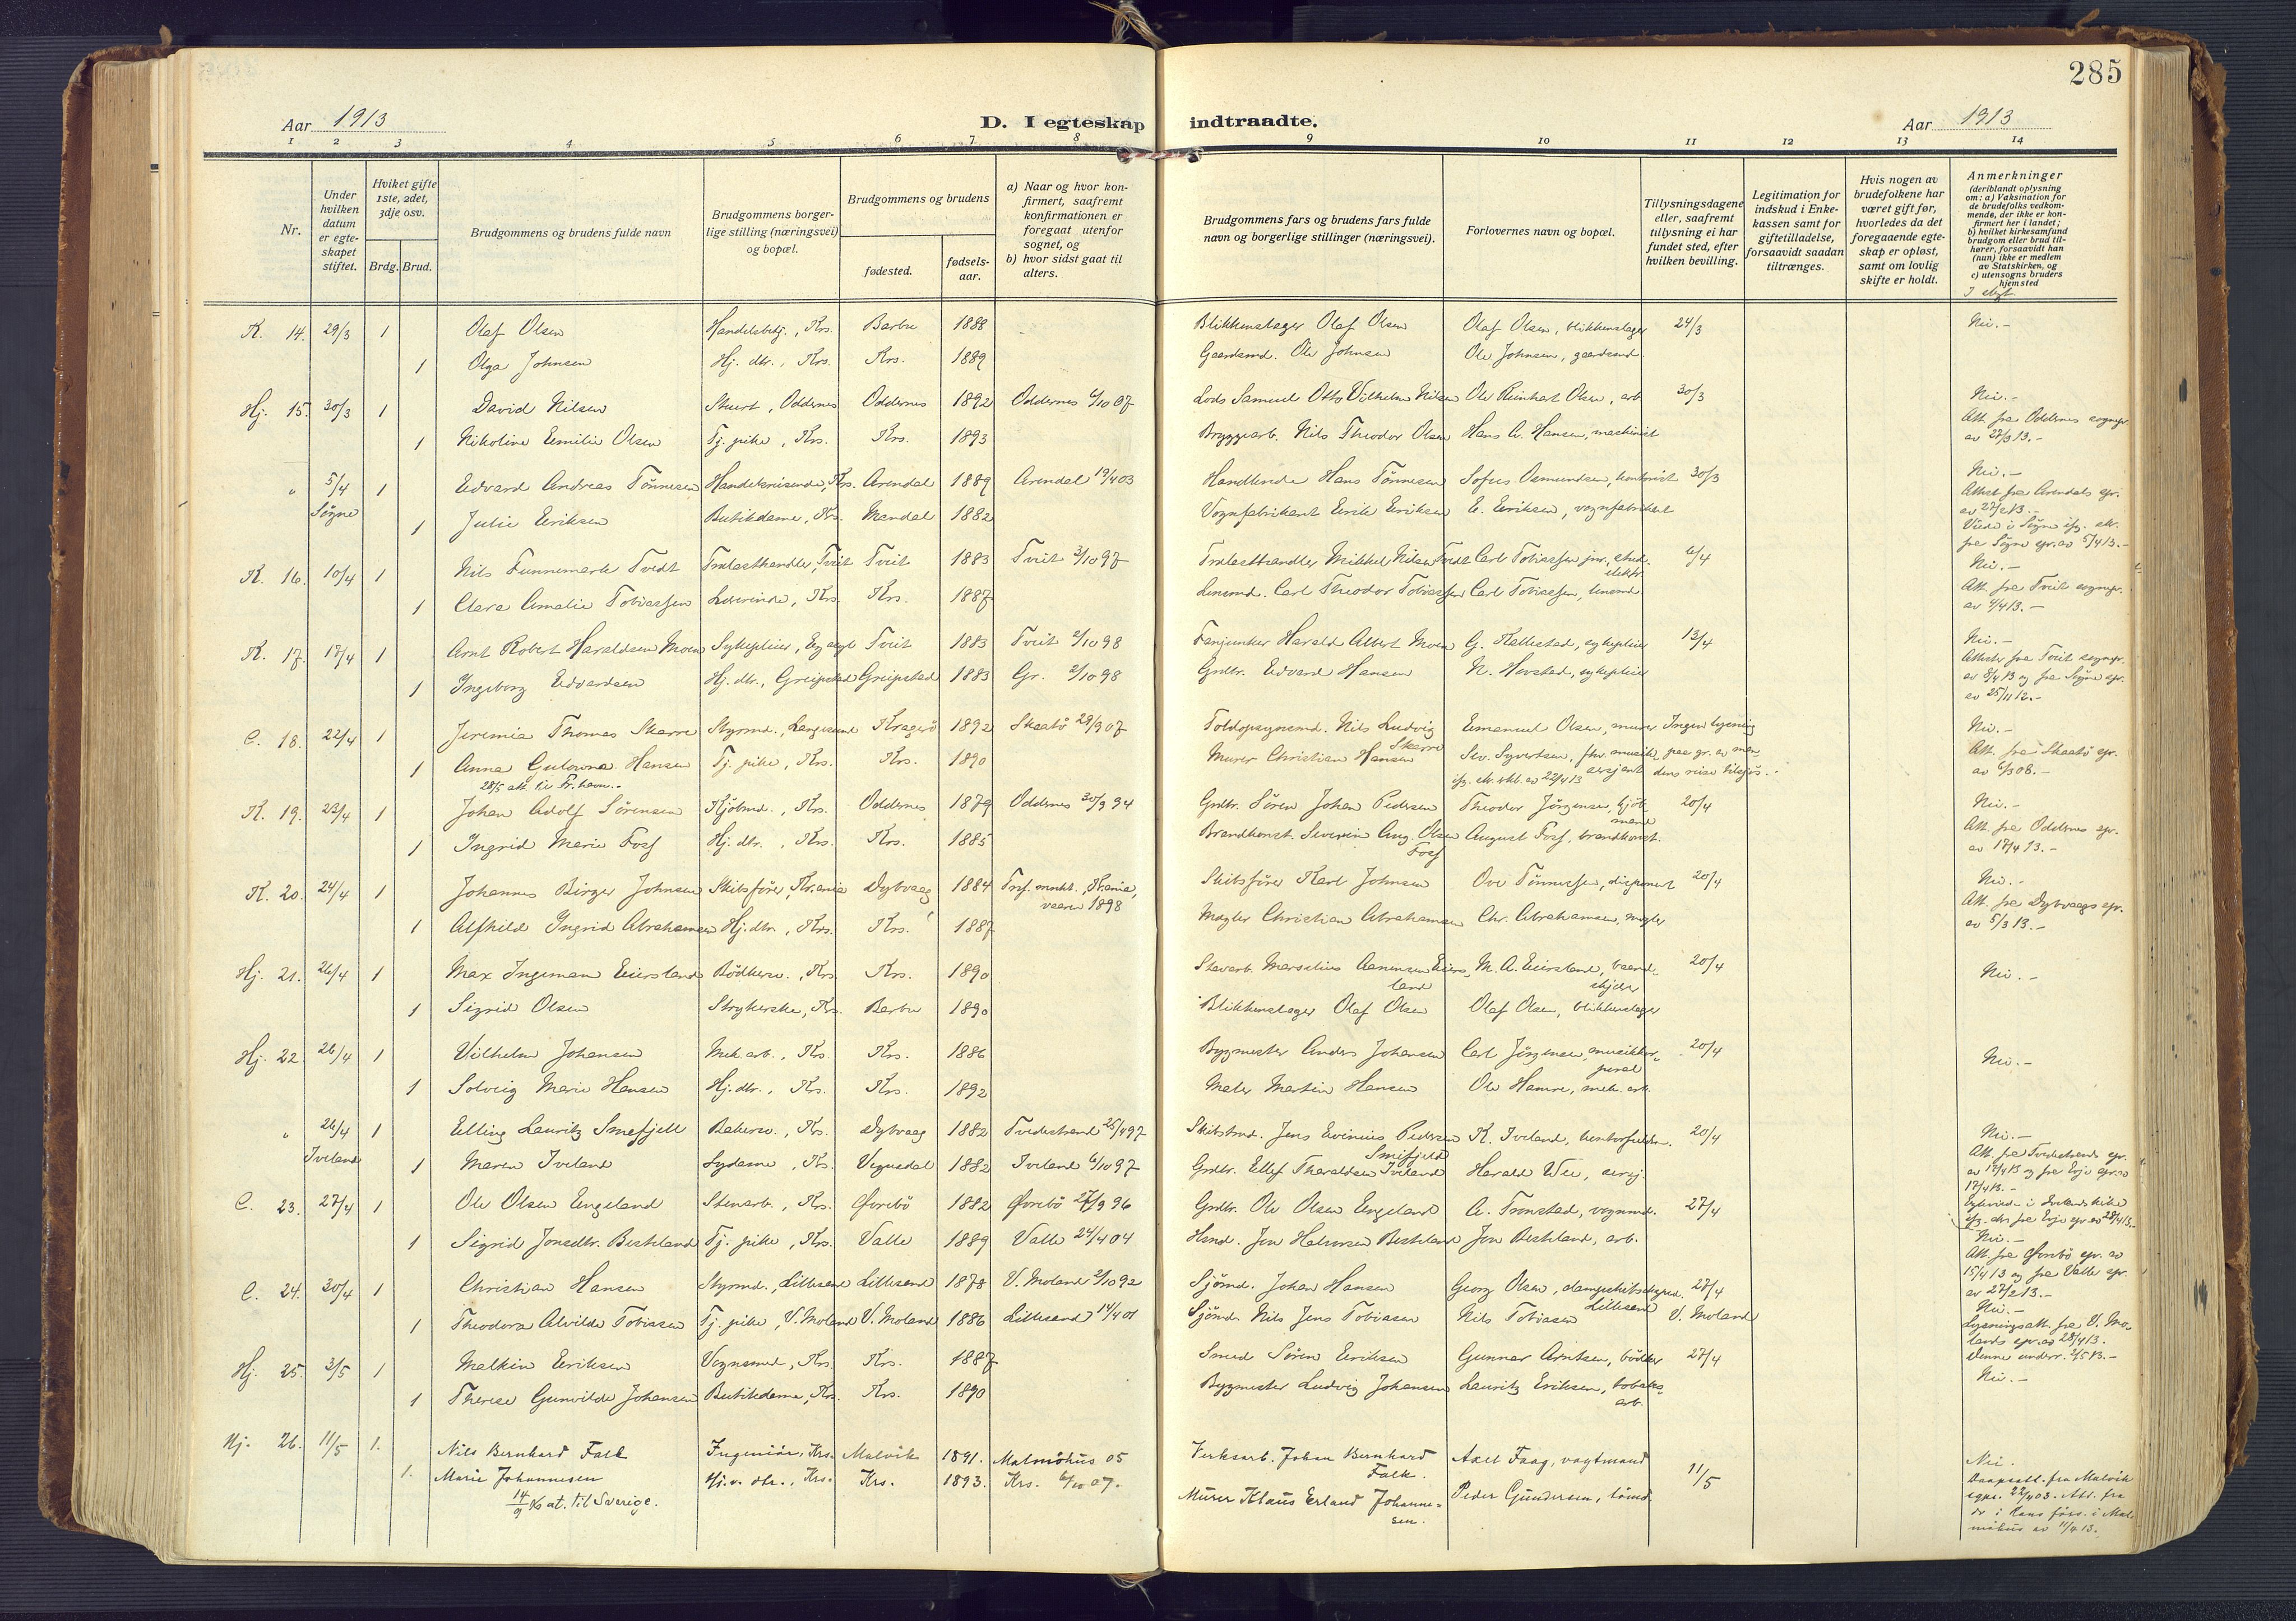 285
Aar 1913
D. I egteskap indtraadte.
Aar 1913
1 2 3 4 5 6 7 8 9 10 11 12 13 14
Nr.
Under hvilken datum er egteskapet stiftet.
Hviket gifte 1ste, 2det, 3dje osv.
Brdg. Brud.
Brudgommens og brudens fulde navn
Brudgommens borgerlige stilling (næringsvei) og bopæl.
Brudgommens og brudens
fødested.
fødselsaar.
a) Naar og hvor konfirmert, saafremt konfirmationen er foregaat utenfor sognet, og
b) hvor sidst gaat til alters.
Brudgommens fars og brudens fars fulde navn og borgerlige stillinger (næringsvei).
Forlovernes navn og bopæl.
Tillysningsdagene eller, saafremt tillysning ei har fundet sted, efter hvilken bevilling.
Legitimation for indskud i Enkekassen samt for giftetilladelse, forsaavidt saadan tiltrænges.
Hvis nogen av brudefolkene har været gift før, hvorledes da det foregaaende egteskap er opløst, samt om lovlig skifte er holdt.
Anmerkninger (deriblandt oplysning om: a) Vaksination for de brudefolks vedkommende, der ikke er konfirmert her i landet; b) hvilket kirkesamfund brudgom eller brud tilhører, forsaavidt han (hun) ikke er medlem av Statskirken, og c) utensogns bruders hjemsted
I slegt
K. 14. 29/3 1 Olaf Olsen Handelsbetj., Krs. Barbu 1888 Blikkenslager Olaf Olsen Olaf Olsen, blikkenslager 24/3 Nei.-
1 Olga Johnsen Hj. dtr., Krs. Krs. 1889 Gaardsmd. Ole Johnsen Ole Johnsen, gaardsmd.
Hj. 15. 30/3 1 David Nilsen Stuert, Oddernes Oddernes 1892 Oddernes 6/10 07 Lods Samuel Otto Vilhelm Nilsen Ole Reinhart Olsen, arb. 30/3 Nei.- Att. fra Oddernes sognepr. av 27/3 13.-
1 Nikoline Emilie Olsen Tj. pike, Krs. Krs. 1893 Bryggearb. Nils Theodor Olsen Hans A. Hansen, maskinist
" 5/4 Søgne 1 Edvard Andreas Tønnesen Handelsreisende, Krs. Arendal 1889 Arendal 19/4 03 Handlende Hans Tønnesen Sofus Osmundsen, kontorist 30/3 Nei.- Attest fra Arendals spr. av 27/2 13.- Viede i Søgne ifg. skr. fra Søgne spr. av 5/4 13.-
1 Julie Eeriksen Butikdame, Krs. Mandal 1882 Vognfabrikant Eerik Eeriksen E. Eeriksen, vognfabrikant
K. 16. 10/4 1 Nils Funnemark Tvedt Trælasthandler, Tveit Tveit 1883 Tveit 3/10 97 Trælasthandler Mikkel Nilsen Tvedt Carl Tobiassen jnr., stud. elektr. 6/4 Nei.- Att. fra Tveit sognepr. av 4/4 13.-
1 Clara Amalie Tobiassen Lærerinde, Krs. Krs. 1887 Lensmd. Carl Theodor Tobiassen Carl Tobiassen, lensmd.
K. 17. 17/4 1 Arnt Robert Haraldsen Moen Sykepleier, Eg asyl Tveit 1883 Tveit 2/10 98 Fanjunker Harald Albert Moen G. Kallestad, sykepleier 13/4 Nei.- Attester fra Tveit sognepr. av 8/4 13 og fra Søgne spr. av 25/11 12.-
1 Ingeborg Edvardsen Hj. dtr., Greipstad Greipstad 1883 Gr. 2/10 98 Grdbr. Edvard Hansen N. Hovstad, sykepleier
C. 18. 22/4 1 Jeremia Thomas Skarre Styrmd., Langesund Kragerø 1892 Skaatø 29/9 07 Toldopsynsmd. Nils Ludvig Skarre Emanuel Olsen, murer Ingen lysning paa gr. av mandens reise tilsjøs.- Nei.- Att. fra Skaatø spr. av 6/3 08.-
1 Anna Gulowna Hansen Tj. pike, Krs. Krs. 1890 Murer Christian Hansen Sev. Syvertsen, fhv. musiksersjant ifg. skr. erkl. av 22/4 13
28/5 att. til Fr.havn.-
K. 19. 23/4 1 Johan Adolf Sørensen Kjøbmd., Krs. Oddernes 1879 Oddernes 30/9 94 Grdbr. Søren Johan Pedersen Theodor Jørgensen, kjøbmand 20/4 Nei.- Att. fra Oddernes spr. av 17/4 13.-
1 Ingrid Marie Foss Hj. dtr., Krs. Krs. 1885 Brandkonst. Severin Aug. Olsen Foss August Foss, brandkonst.
K. 20. 24/4 1 Johannes Birger Johnsen Skibsfører, Kr.ania Dybvaag 1884 Tref. menh., Kr.ania, vaaren 1898 Skibsfører Karl Johnsen Ove Tønnessen, disponent 20/4 Nei.- Att. fra Dybvaags spr. av 5/3 13.-
1 Alfhild Ingrid Abrahamsen Hj. dtr., Krs. Krs. 1887 Mægler Christian Abrahamsen Chr. Abrahamsen, mægler
Hj. 21. 26/4 1 Max Ingeman Eiersland Bødkersv., Krs. Krs. 1890 Stavarb. Marselius Aanensen Eiersland M. A. Eiersland, baandskjær 20/4 Nei.-
1 Sigrid Olsen Strykerske, Krs. Barbu 1890 Blikkenslager Olaf Olsen Olaf Olsen, blikkenslager
Hj. 22. 26/4 1 Vilhelm Johansen Mek. arb., Krs. Krs. 1886 Bygmester Anders Johansen Carl Jørgensen, musikkorporal 20/4 Nei.-
1 Solveig Marie Hansen Hj. dtr., Krs. Krs. 1892 Maler Martin Hansen Ole Hamre, mek. arb.
" 26/4 Iveland 1 Elling Lauritz Smefjell Bakersv., Krs. Dybvaag 1882 Tvedestrand 25/4 97 Skibstmd. Jens Evinius Pedersen Smefjeld K. Iveland, kontorfuldm. 20/4 Nei.- Att. fra Tvedestrands spr. av 17/4 13 og fra Evje spr. av 17/4 13.-
1 Maren Iveland Sydame, Krs. Vegusdal 1882 Iveland 6/10 97 Grdbr. Ellef Tharaldsen Iveland Harald Wee, sersj.
C. 23. 27/4 1 Ole Olsen Engeland Stenarb., Krs. Øvrebø 1882 Øvrebø 27/9 96 Grdbr. Ole Olsen Engeland A. Tronstad, vognmd. 27/4 Nei.- Att. fra Øvrebø spr. av 15/4 13 og fra Valle spr. av 27/2 13.-
1 Sigrid Jonsdtr. Besteland Tj. pike, Krs. Valle 1889 Valle 24/4 04 Hsmd. Jon Halvorsen Besteland Jon Besteland, arb.
C. 24. 30/4 1 Christian Hansen Styrmd., Lillesand Lillesand 1878 V. Moland 2/10 92 Sjømd. Johan Hansen Georg Olsen, dampskibsexped. Lillesand 27/4 V. Moland Nei.- Lysningsatt. fra V. Molands spr. av 28/4 13. Denne underr. 2/5 13.-
1 Theodora Alvilde Tobiassen Tj. pike, V. Moland V. Moland 1886 Lillesand 14/4 01 Sjømd. Nils Jens Tobiassen Nils Tobiassen
Hj. 25. 3/5 1 Malkin Eeriksen Vognsmed, Krs. Krs. 1887 Smed Søren Eeriksen Gunnar Arntsen, bødker 27/4 Nei.-
1 Therese Gunvilde Johansen Butikdame, Krs. Krs. 1890 Bygmester Ludvig Johansen Lauritz Eriksen, tobaksarb.
Hj. 26. 11/5 1. Nils Bernhard Falk Ingeniør, Krs. Malvik 1891. Malmöhus 05 Verksarb. Johan Bernhard Falk. Axel Faag, vagtmand 11/5 Nei. Daapsatt. fra Malvik sgpr. 22/4 03. Att. fra
1. Marie Johannesen Hj.v. dtr., Krs. Krs. 1893. Krs. 6/10 07. Murer Klaus Erland Johannesen. Peder Gundersen, tømd.
14/9 16 at. til Sverige.